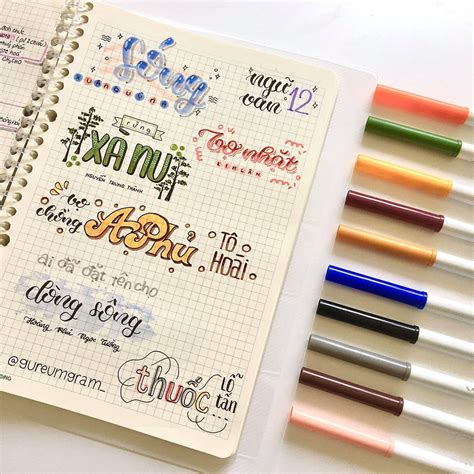 Sóng
XUÂN QUỲNH
ngữ
văn 12
rừng
XÀ NU
NGUYỄN TRUNG THÀNH
Vợ nhặt
KIM LÂN
vợ
chồng
A Phủ
TÔ
HOÀI
Ai đã đặt tên cho
dòng sông
Hoàng Phủ Ngọc Tường
@gureumgram_
thuốc
lỗ
tấn